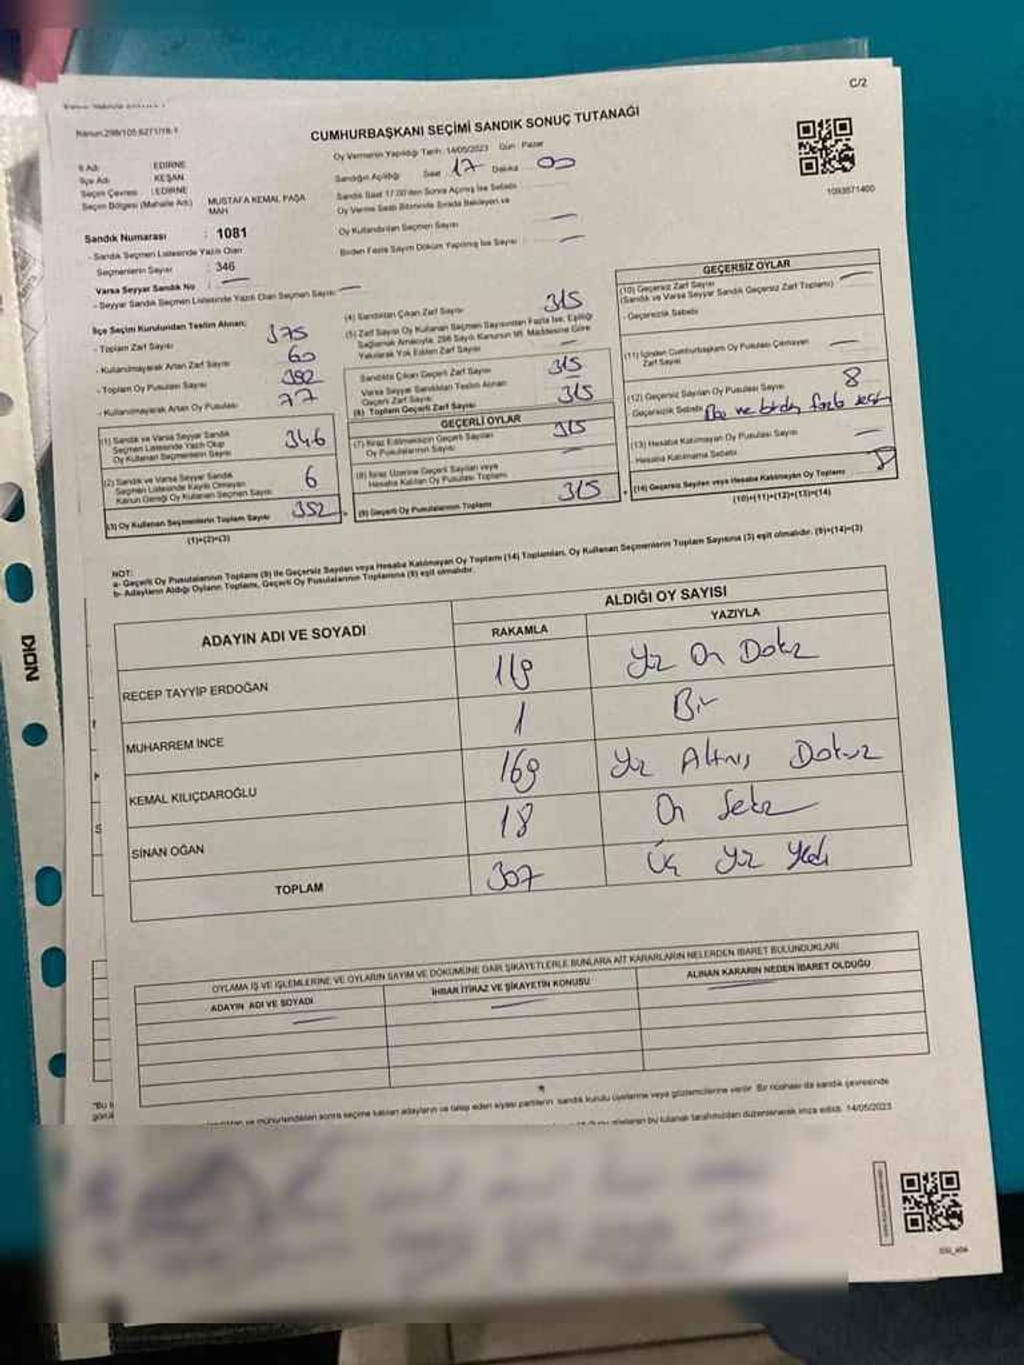 C/2
CUMHURBAŞKANI SEÇİMİ SANDIK SONUÇ TUTANAĞI
Oy Vermenin Yapıldığı Tarih: 14/05/2023 Gün: Pazar
Sandığın Açıldığı Saat 17 Dakika 00
Sandık Saat 17:00'den Sonra Açılmış İse Sebebi
Oy Verme Saati Bitiminde Sırada Bekleyen ve
Oy Kullandırılan Seçmen Sayısı
Birden Fazla Sayım Döküm Yapılmış İse Sayısı :
1093571400
İl Adı : EDİRNE
İlçe Adı : KEŞAN
Seçim Çevresi : EDİRNE
Seçim Bölgesi (Mahalle Adı) MUSTAFA KEMAL PAŞA
MAH
Sandık Numarası : 1081
- Sandık Seçmen Listesinde Yazılı Olan
Seçmenlerin Sayısı : 346
Varsa Seyyar Sandık No :
- Seyyar Sandık Seçmen Listesinde Yazılı Olan Seçmen Sayısı:
İlçe Seçim Kurulundan Teslim Alınan:
- Toplam Zarf Sayısı 375
- Kullanılmayarak Artan Zarf Sayısı 60
- Toplam Oy Pusulası Sayısı 392
- Kullanılmayarak Artan Oy Pusulası 77
(1) Sandık ve Varsa Seyyar Sandık
Seçmen Listesinde Yazılı Olup
Oy Kullanan Seçmenlerin Sayısı 346
(2) Sandık ve Varsa Seyyar Sandık
Seçmen Listesinde Kayıtlı Olmayan
Kanun Gereği Oy Kullanan Seçmen Sayısı 6
(3) Oy Kullanan Seçmenlerin Toplam Sayısı 352
(1)+(2)=(3)
(4) Sandıktan Çıkan Zarf Sayısı 315
(5) Zarf Sayısı Oy Kullanan Seçmen Sayısından Fazla İse, Eşitliği
Sağlamak Amacıyla, 298 Sayılı Kanunun 98. Maddesine Göre
Yakılarak Yok Edilen Zarf Sayısı
Sandıkta Çıkan Geçerli Zarf Sayısı 315
Varsa Seyyar Sandıktan Teslim Alınan
Geçerli Zarf Sayısı
(6) Toplam Geçerli Zarf Sayısı 315
GEÇERLİ OYLAR
(7) İtiraz Edilmeksizin Geçerli Sayılan
Oy Pusulalarının Sayısı 315
(8) İtiraz Üzerine Geçerli Sayılan veya
Hesaba Katılan Oy Pusulası Toplamı
(9) Geçerli Oy Pusulalarının Toplamı 315
GEÇERSİZ OYLAR
(10) Geçersiz Zarf Sayısı
(Sandık ve Varsa Seyyar Sandık Geçersiz Zarf Toplamı)
- Geçersizlik Sebebi
(11) İçinden Cumhurbaşkanı Oy Pusulası Çıkmayan
Zarf Sayısı
(12) Geçersiz Sayılan Oy Pusulası Sayısı 8
Geçersizlik Sebebi
(13) Hesaba Katılmayan Oy Pusulası Sayısı
Hesaba Katılmama Sebebi
(14) Geçersiz Sayılan veya Hesaba Katılmayan Oy Toplamı 8
(10)+(11)+(12)+(13)=(14)
NOT:
a- Geçerli Oy Pusulalarının Toplamı (9) ile Geçersiz Sayılan veya Hesaba Katılmayan Oy Toplamı (14) Toplamları, Oy Kullanan Seçmenlerin Toplam Sayısına (3) eşit olmalıdır. (9)+(14)=(3)
b- Adayların Aldığı Oyların Toplamı, Geçerli Oy Pusulalarının Toplamına (9) eşit olmalıdır.
ADAYIN ADI VE SOYADI ALDIĞI OY SAYISI
RAKAMLA YAZIYLA
RECEP TAYYİP ERDOĞAN 119 Yüz On Dokuz
MUHARREM İNCE 1 Bir
KEMAL KILIÇDAROĞLU 169 Yüz Altmış Dokuz
SİNAN OĞAN 18 On Sekiz
TOPLAM 307 Üç Yüz Yedi
OYLAMA İŞ VE İŞLEMLERİNE VE OYLARIN SAYIM VE DÖKÜMÜNE DAİR ŞİKAYETLERLE BUNLARA AİT KARARLARIN NELERDEN İBARET BULUNDUKLARI
ADAYIN ADI VE SOYADI İHBAR İTİRAZ VE ŞİKAYETİN KONUSU ALINAN KARARIN NEDEN İBARET OLDUĞU
mühürlendikten sonra seçime katılan adayların ve talep eden siyasi partilerin sandık kurulu üyelerine veya gözlemcilerine verilir. Bir nüshası da sandık çevresinde
bu tutanak tarafımızdan düzenlenerek imza edildi. 14/05/2023